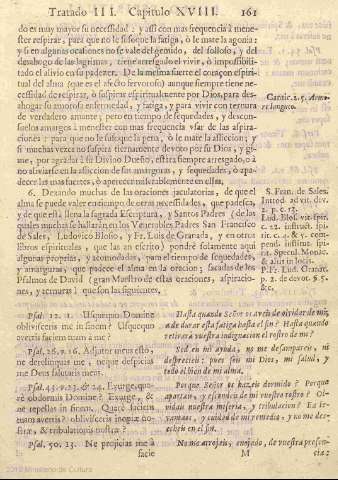 Tratado III. Capitulo XVIII. 161
do es muy mayor su necessidad; y assi con mas frequencia à menester respirar, para que no le sufoque la fatiga, ò le mate la agonia:
y si en algunas ocasiones no se vale del gemido, del sollozo, y del
desahogo de las lagrimas, tiene arresgado el vivir, ò impossibilitado el alivio en su padecer. De la mesma suerte el coraçon espiritual del alma (que es el afecto fervoroso) aunque siempre tiene necessidad de respirar, ò suspirar espiritualmente por Dios para desahogar su amorosa enfermedad, y fatiga, y para vivir con ternura
de verdadero amante; pero en tiempo de sequedades, y desconsuelos amargos à menester con mas frequencia vsar de las aspiraciones: para que no le sufoque la pena, ò le mate la afliccion; y
si muchas vezes no suspira tiernamente devoto por su Dios, y gime, por agradar à su Divino Dueño, estarà siempre arresgado, ò à
no aliviarse en la afliccion de sus amarguras, y sequedades, ò apadecerlas mas fuertes, ò aperecer miserablemente en ellas.
6. Dexando muchas de las oraciones jaculatorias, de que el
alma se puede valer en tiempo de otras necessidades, que padesca,
y de que està llena la sagrada Escriptura, y Santos Padres (de las
quales muchas se hallaràn en los Venerables Padres San Francisco
de Sales, Ludovico Blosio, y Fr. Luis de Granada, y en otros
libros espirituales, que las an escrito) pondrè solamente aqui
algunas proprias, y acomodadas, para el tiempo de sequedades,
y amarguras, que padece el alma en la oracion; sacadas de los
Psalmos de David (gran Maestro de estas oraciones, aspiraciones, y ternuras) que son las siguientes.
S. Fran. de Sales.
Introd. ad vit. div.
p. 2. c. 13.
Psal. 12. 1. Vsquequo Domine
oblivisceris me in finem? Vsquequo
avertis faciem tuam a me?
Hasta quando Señor os aveis de olvidar de mi,
a de durar esta fatiga hasta el fin? Hasta quando
retirarà vuestra indignacion el rostro de mi?
Psal. 26. v. 16. Adjutor meus esto,
ne derelinquas me; neque despicias
me Deus salutaris meus.
Sed en mi ayuda, no me desampareis, ni
desprecieis; pues sois mi Dios, mi salud, y
todo el bien de mi alma.
Psal. 43. v. 23. & 24. Exurge, quare obdormis Domine? Exurge, &
ne repellas in finem. Quare faciem
tuam avertis? oblivisceris inopiæ nostræ, & tribulationis nostræ?
Porque Señor os hazeis dormido? Porque
apartan, y escondeis de mi vuestro rostro? Olvidais nuestra miseria, y tribulacion? Ea levantaos, y cuidad de mi remedio, y no me desecheis en el fin.
Psal. 50. 13. Ne projicias me à
facie
No me arrojeis, enojado, de vuestra presenM cia:
2010 Ministerio de Cultura